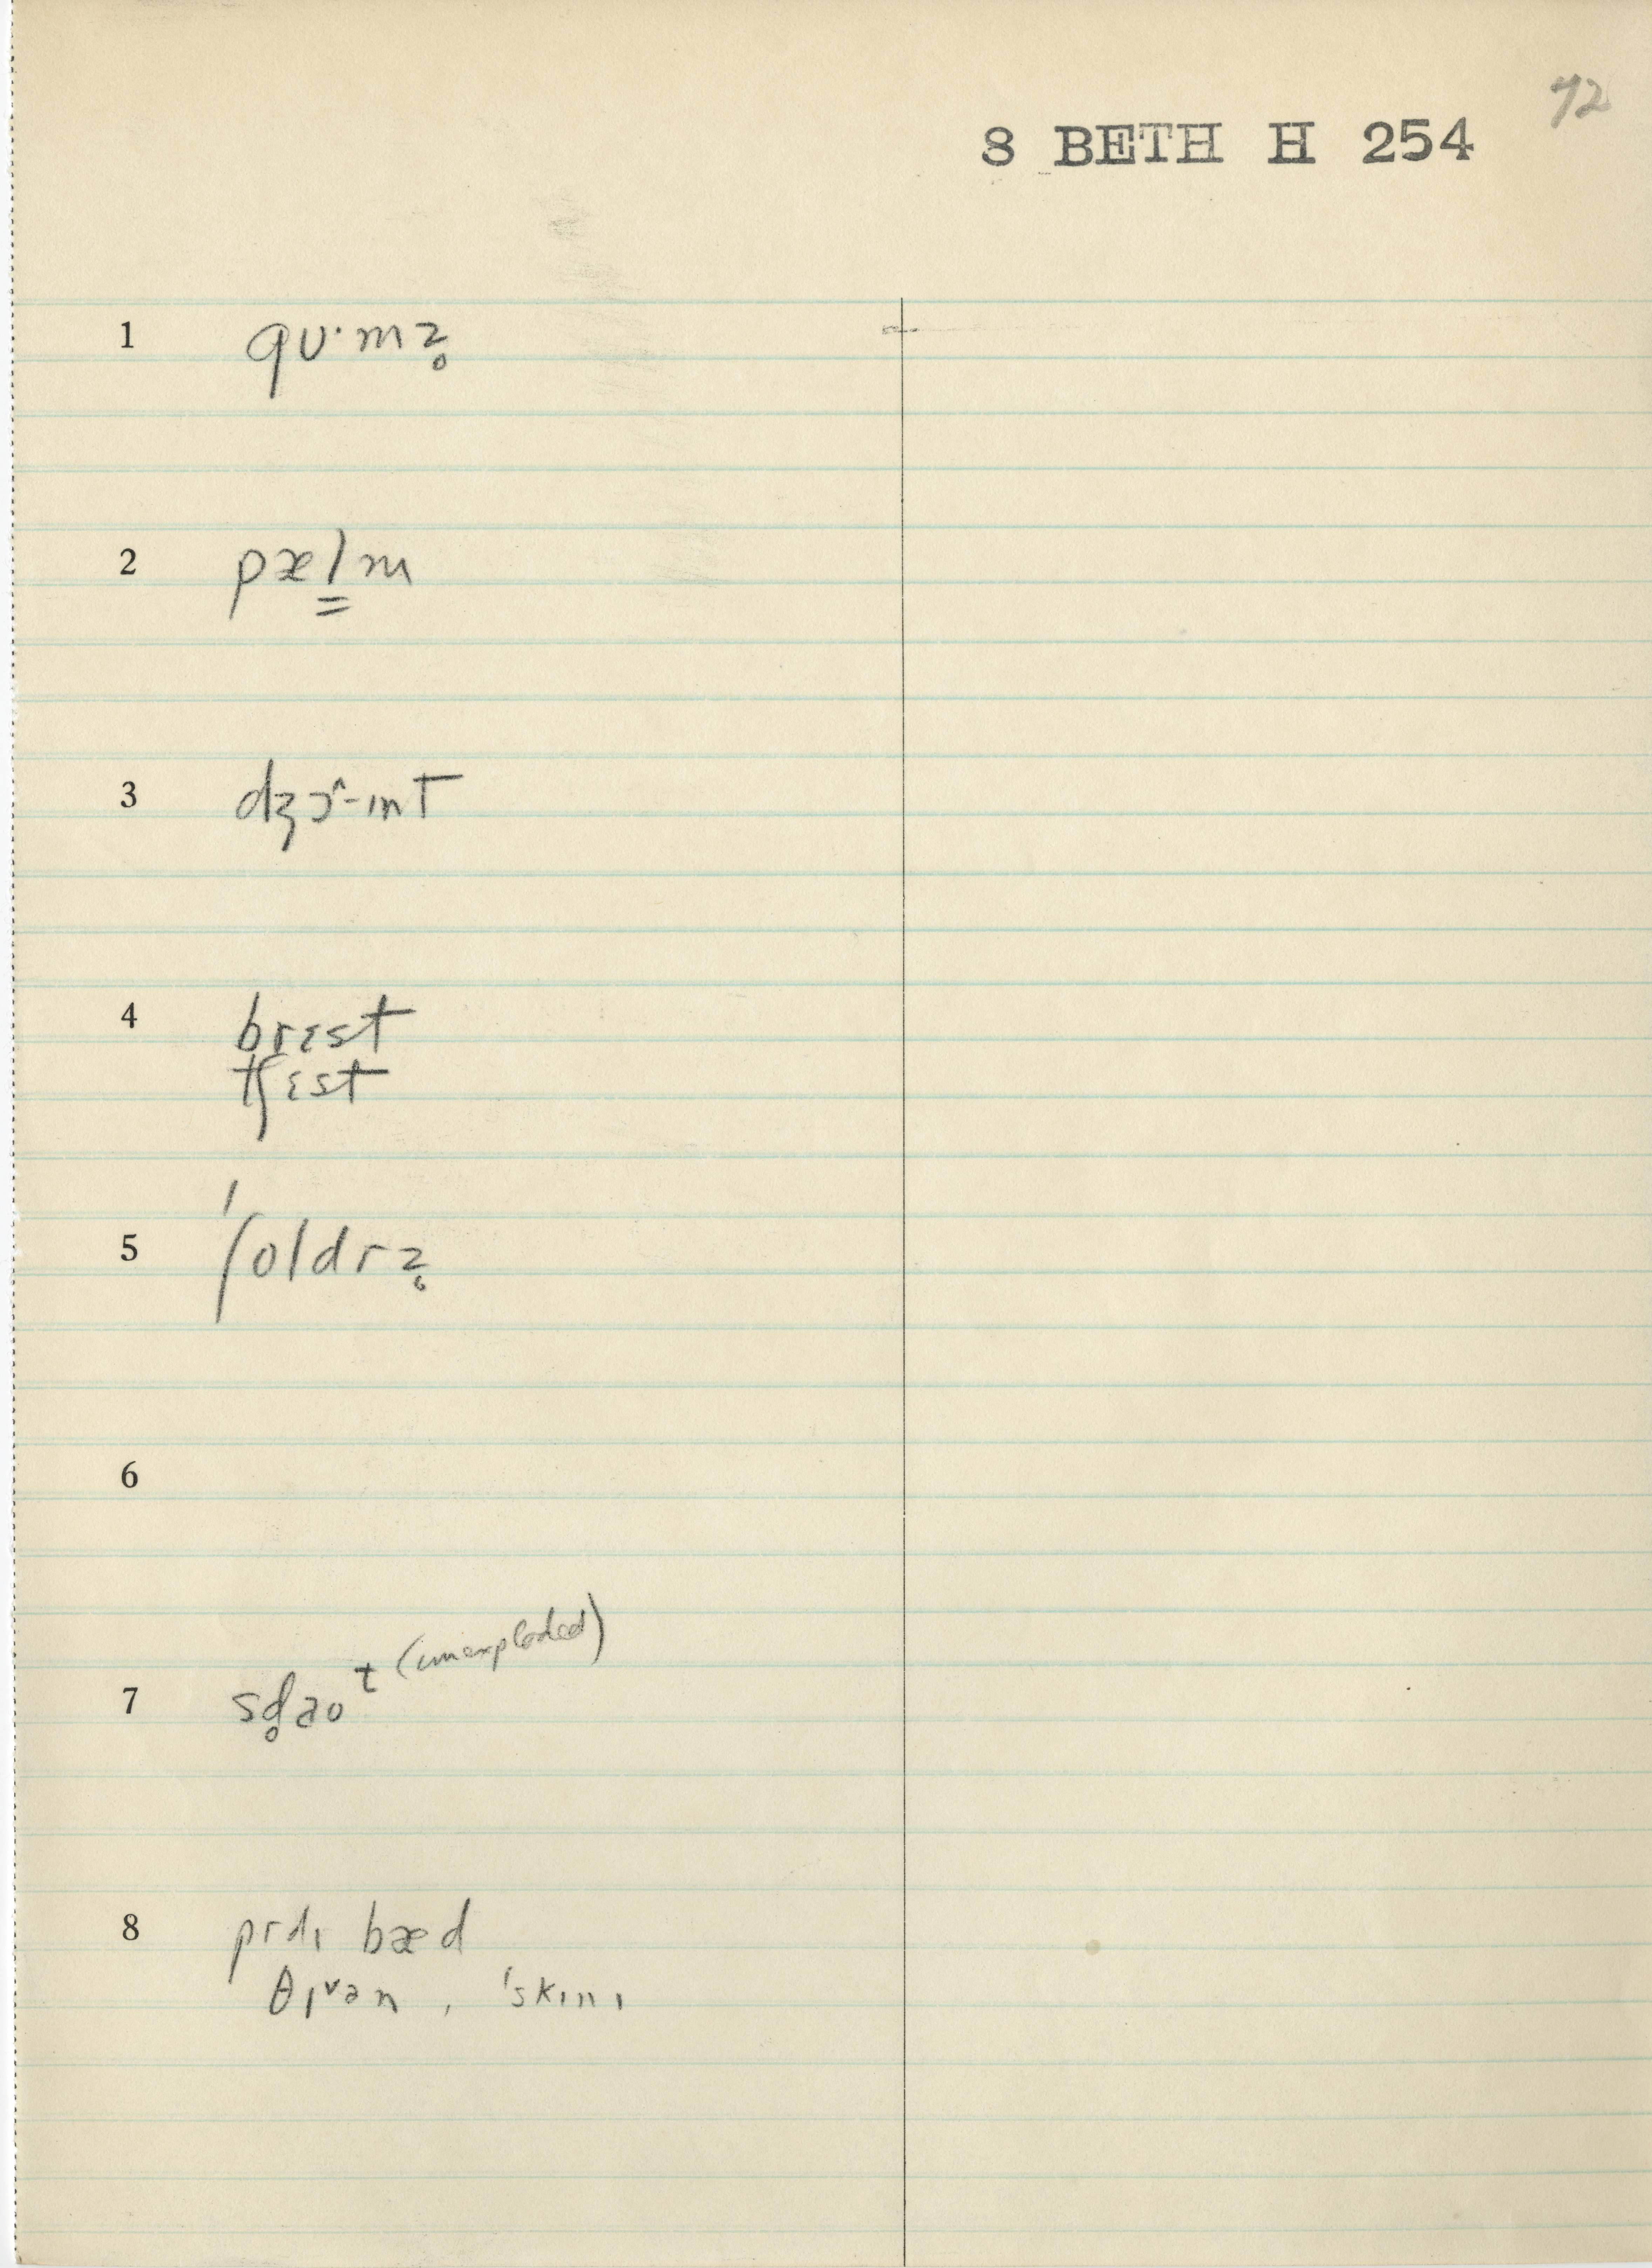 72
8 BETH H 254
1 gʊ·mz̥
2 pæl̳m
3 dʒɔ^-ɪnt
4 brɛst
tʃɛst
5 ˈʃoldrz̥
6
7 sd̥ɑoᵗ (unexploded)
8 prdɪ bæd
θɪᵛən, ˈskɪnɪ